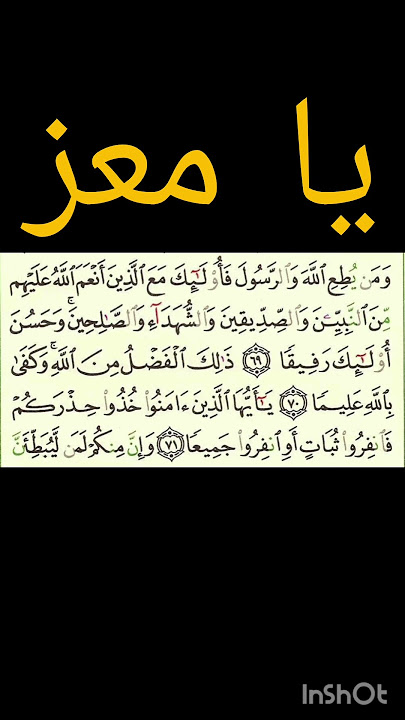 يا معز
وَمَن يُطِعِ ٱللَّهَ وَٱلرَّسُولَ فَأُو۟لَـٰٓئِكَ مَعَ ٱلَّذِينَ أَنْعَمَ ٱللَّهُ عَلَيْهِم
مِّنَ ٱلنَّبِيِّـۧنَ وَٱلصِّدِّيقِينَ وَٱلشُّهَدَآءِ وَٱلصَّـٰلِحِينَ ۚ وَحَسُنَ
أُو۟لَـٰٓئِكَ رَفِيقًا ٦٩ ذَٰلِكَ ٱلْفَضْلُ مِنَ ٱللَّهِ ۚ وَكَفَىٰ
بِٱللَّهِ عَلِيمًا ٧٠ يَـٰٓأَيُّهَا ٱلَّذِينَ ءَامَنُوا۟ خُذُوا۟ حِذْرَكُمْ
فَٱنفِرُوا۟ ثُبَاتٍ أَوِ ٱنفِرُوا۟ جَمِيعًا ٧١ وَإِنَّ مِنكُمْ لَمَن لَّيُبَطِّئَنَّ
InShOt